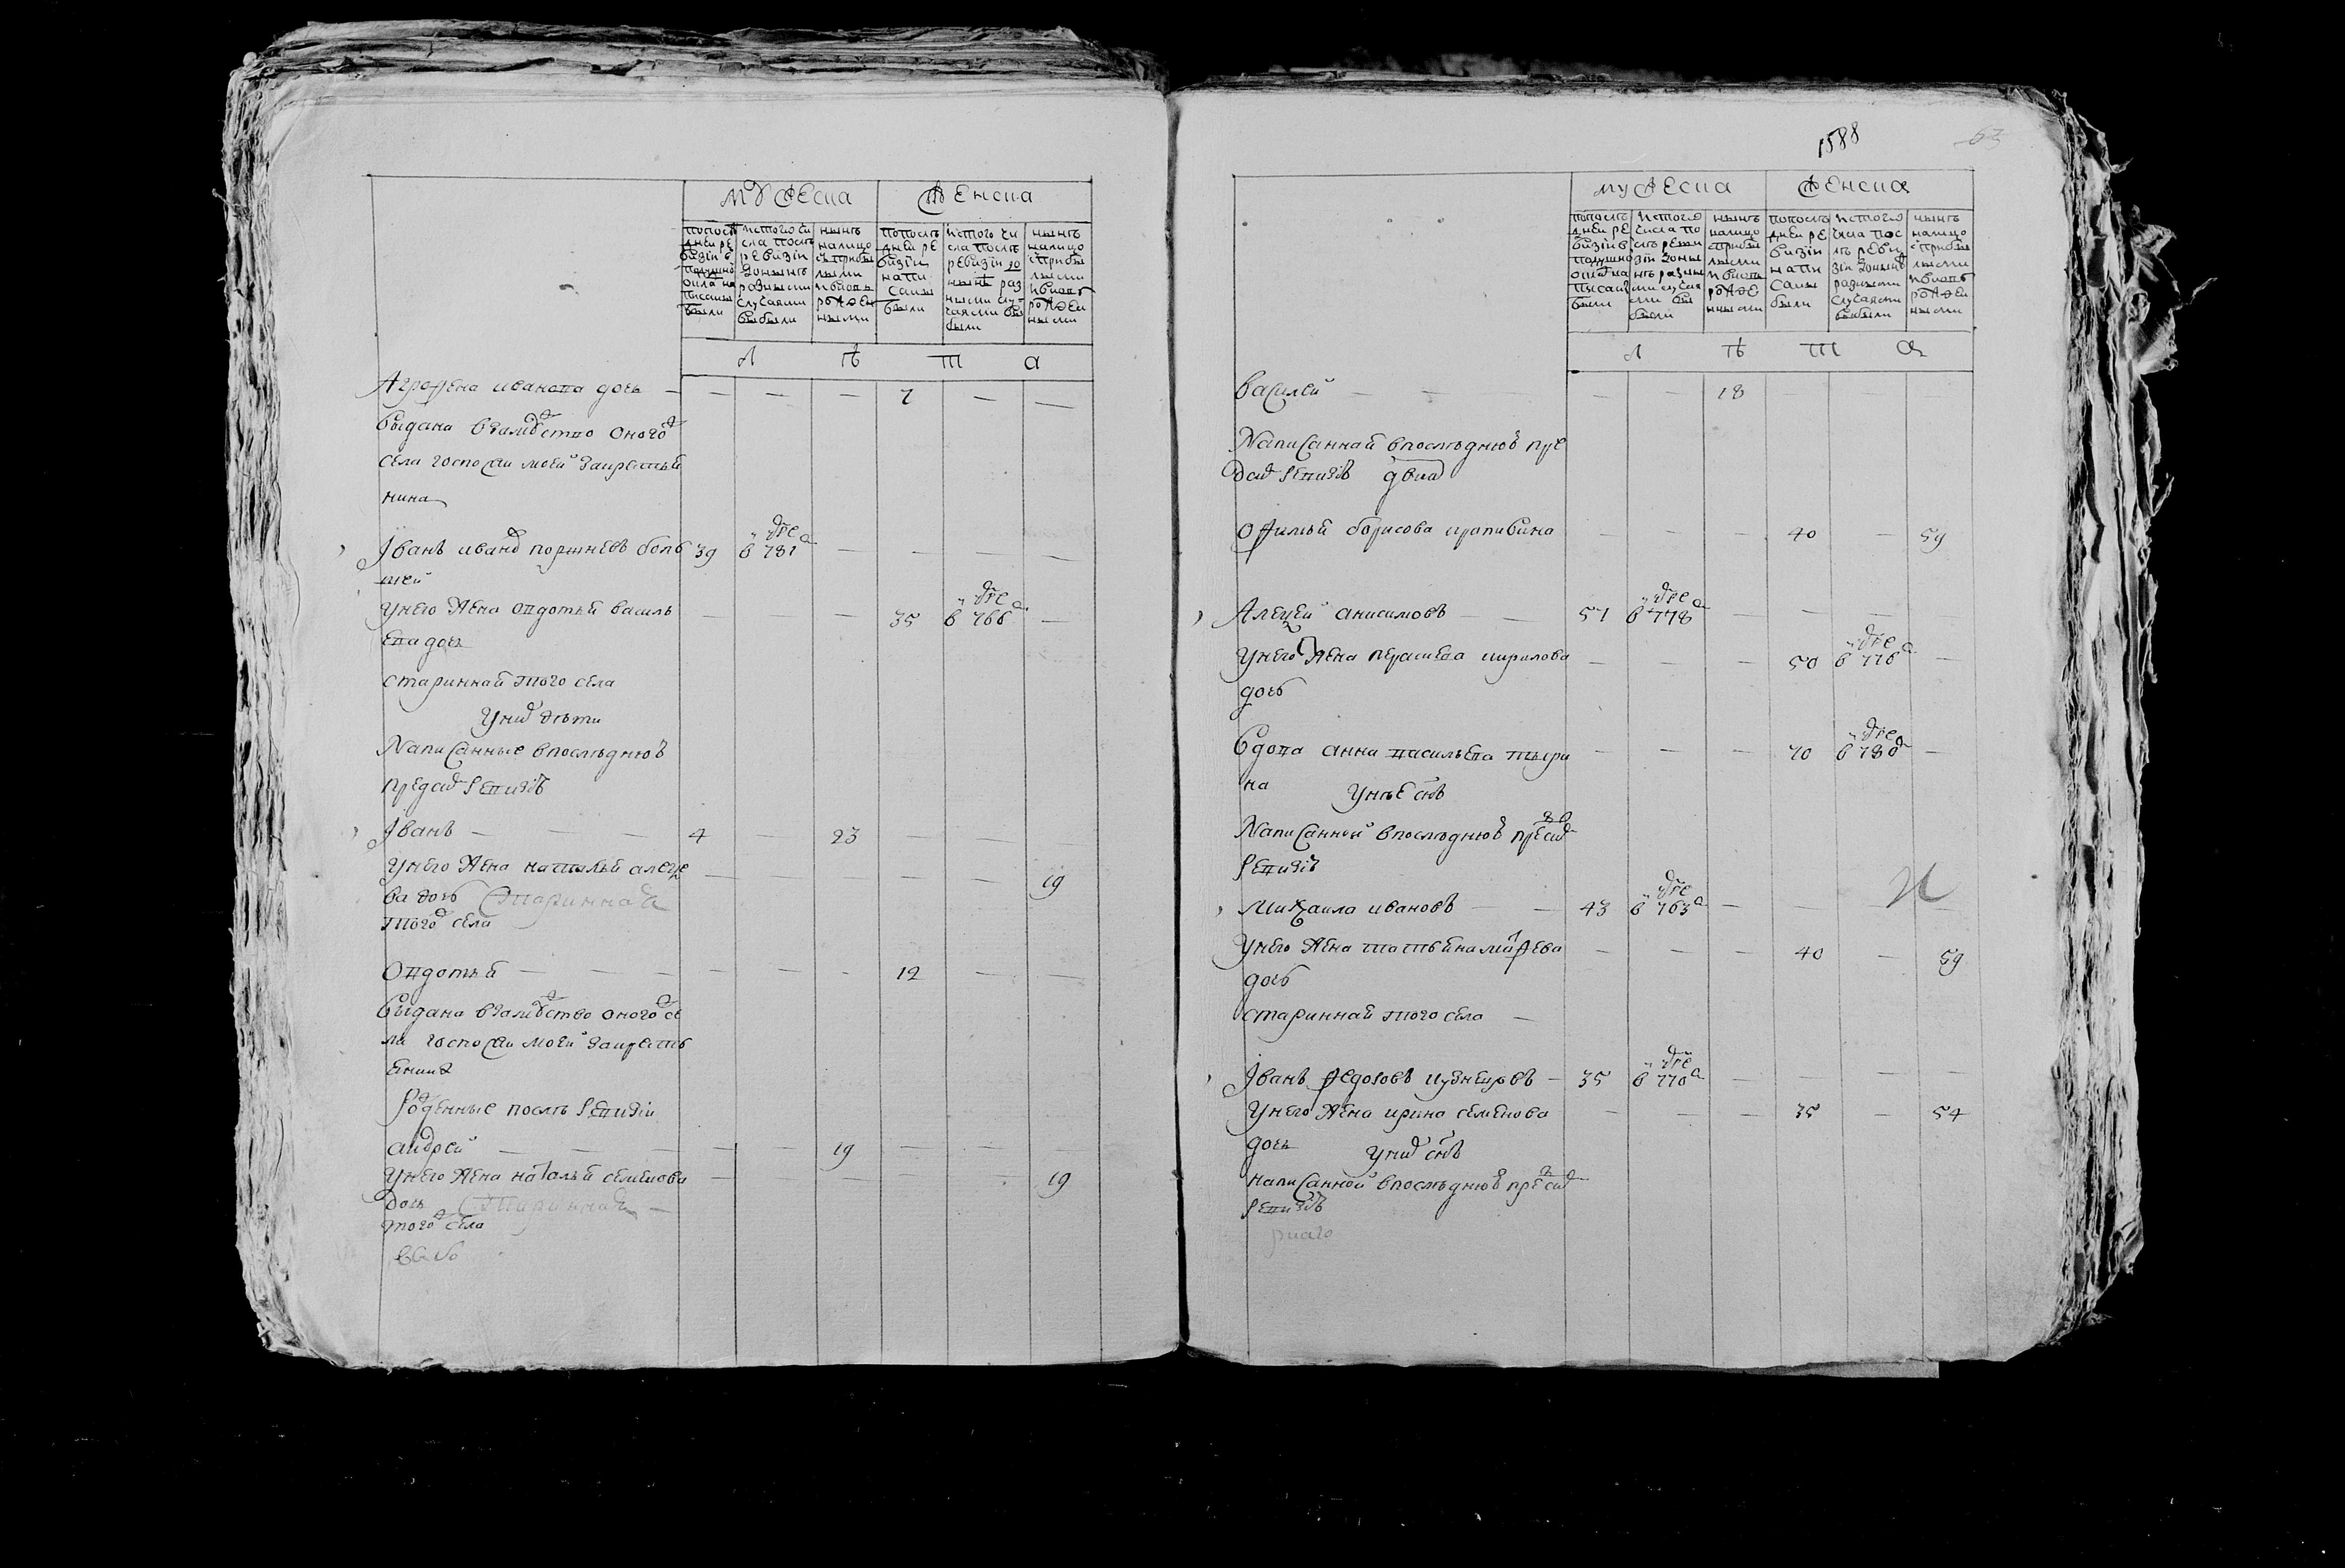 мужеска
женска
попослѣ
дней ре
визїи в
подушно
окла на
писаны
были
ис того чи
сла послѣ
ревизїи
до нынѣ
разными
случаями
выбыли
нынѣ
налицо
с прибы
лыми
и вновь
рожден
ными
попослѣ
дней ре
визїи
напи
саны
были
ис того чи
сла послѣ
ревизїи до
нынѣ раз
ными слу
чаями вы
были
нынѣ
налицо
с прибы
лыми
и вновь
рожден
ными
л ѣ т а
Агрофена иванова дочь — — — — 7 — —
выдана взамужство оного
села господи моей за крестья
нина
Іванъ иванов поршневъ боль 39 в 781 — — — —
шей
У него жена овдотья василь — — — 35 в 766 —
ева дочь
старинная того села
У них дѣти
Написанные в последнюю
пред сим ревизїю
Іванъ — 4 — 23 — — —
У него жена наталья алеѯе — — — — — 19
ва дочь старинная
того села
Овдотья — — — — 12 — —
выдана взамужство оного се
ла господи моей за кресть
янина
Рожденные послѣ ревизїи
андрей — — — 19 — — —
У него жена наталья семенова — — — — — 19
дочь старинная —
того села
1588
63
мужеска
женска
попослѣ
дней ре
визїи в
подушно
окла на
писаны
были
ис того
числа по
слѣ реви
зїи до ны
нѣ разны
ми случая
ми вы
были
нынѣ
налицо
с прибы
лыми
и вновь
рожде
нными
попослѣ
дней ре
визїи
напи
саны
были
ис того
числа пос
лѣ реви
зїи до нынѣ
разными
случаями
выбыли
нынѣ
налицо
с прибы
лыми
и вновь
рожден
ными
л ѣ т а
василей — — — — 18 — — —
Написанная в последнюю пре
д сим ревизїю двка
Офимья борисова — — — 40 — 59
Алеѯей анисимовъ — 57 в 778 — — —
У него жена парасковья кирилова — — — 50 в 776 —
дочь
вдова анна васильева — — — 70 в 780 —
на У нѣе снъ
Написанной в последнюю пред сим
ревизїю
Михаила ивановъ — 43 в 763 — — —
У него жена татьяна матфеева — — — 40 — 59
дочь
старинная того села —
Іванъ федоровъ кузнецовъ — 35 в 770 — — — —
У него жена ирина семенова — — — 35 — 54
дочь У них снъ
написанной в последнюю пред сим
ревизїю